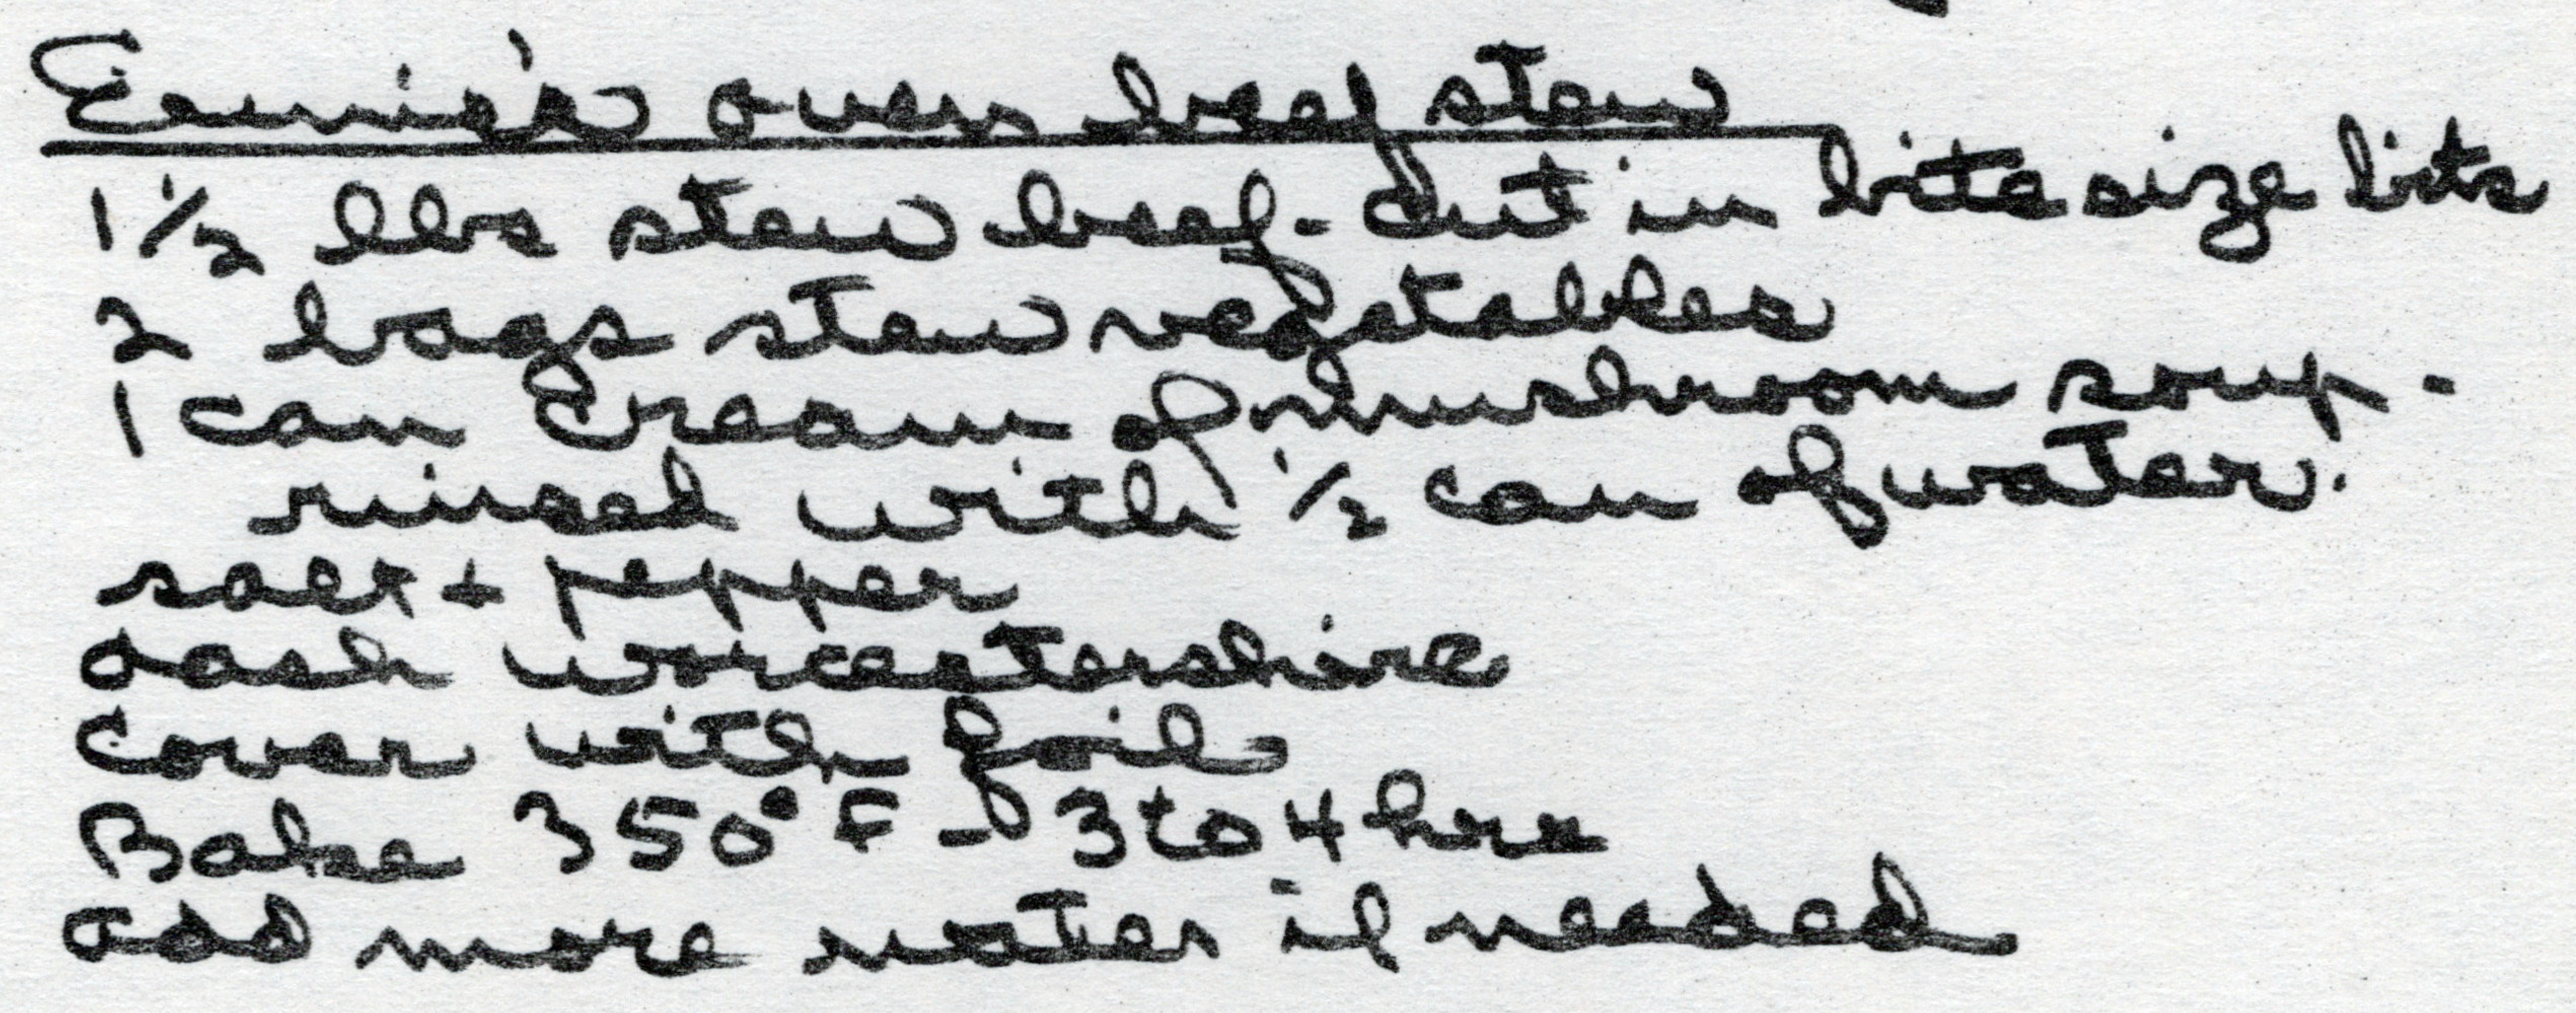 Ernie's oven beef stew
1 1/2 lbs stew beef - cut in bite size bits
2 bags stew vegetables
1 can Cream of mushroom soup -
rinsed with 1/2 can of water.
salt + pepper
dash worcestershire
Cover with foil
Bake 350°F - 3 to 4 hrs
add more water if needed